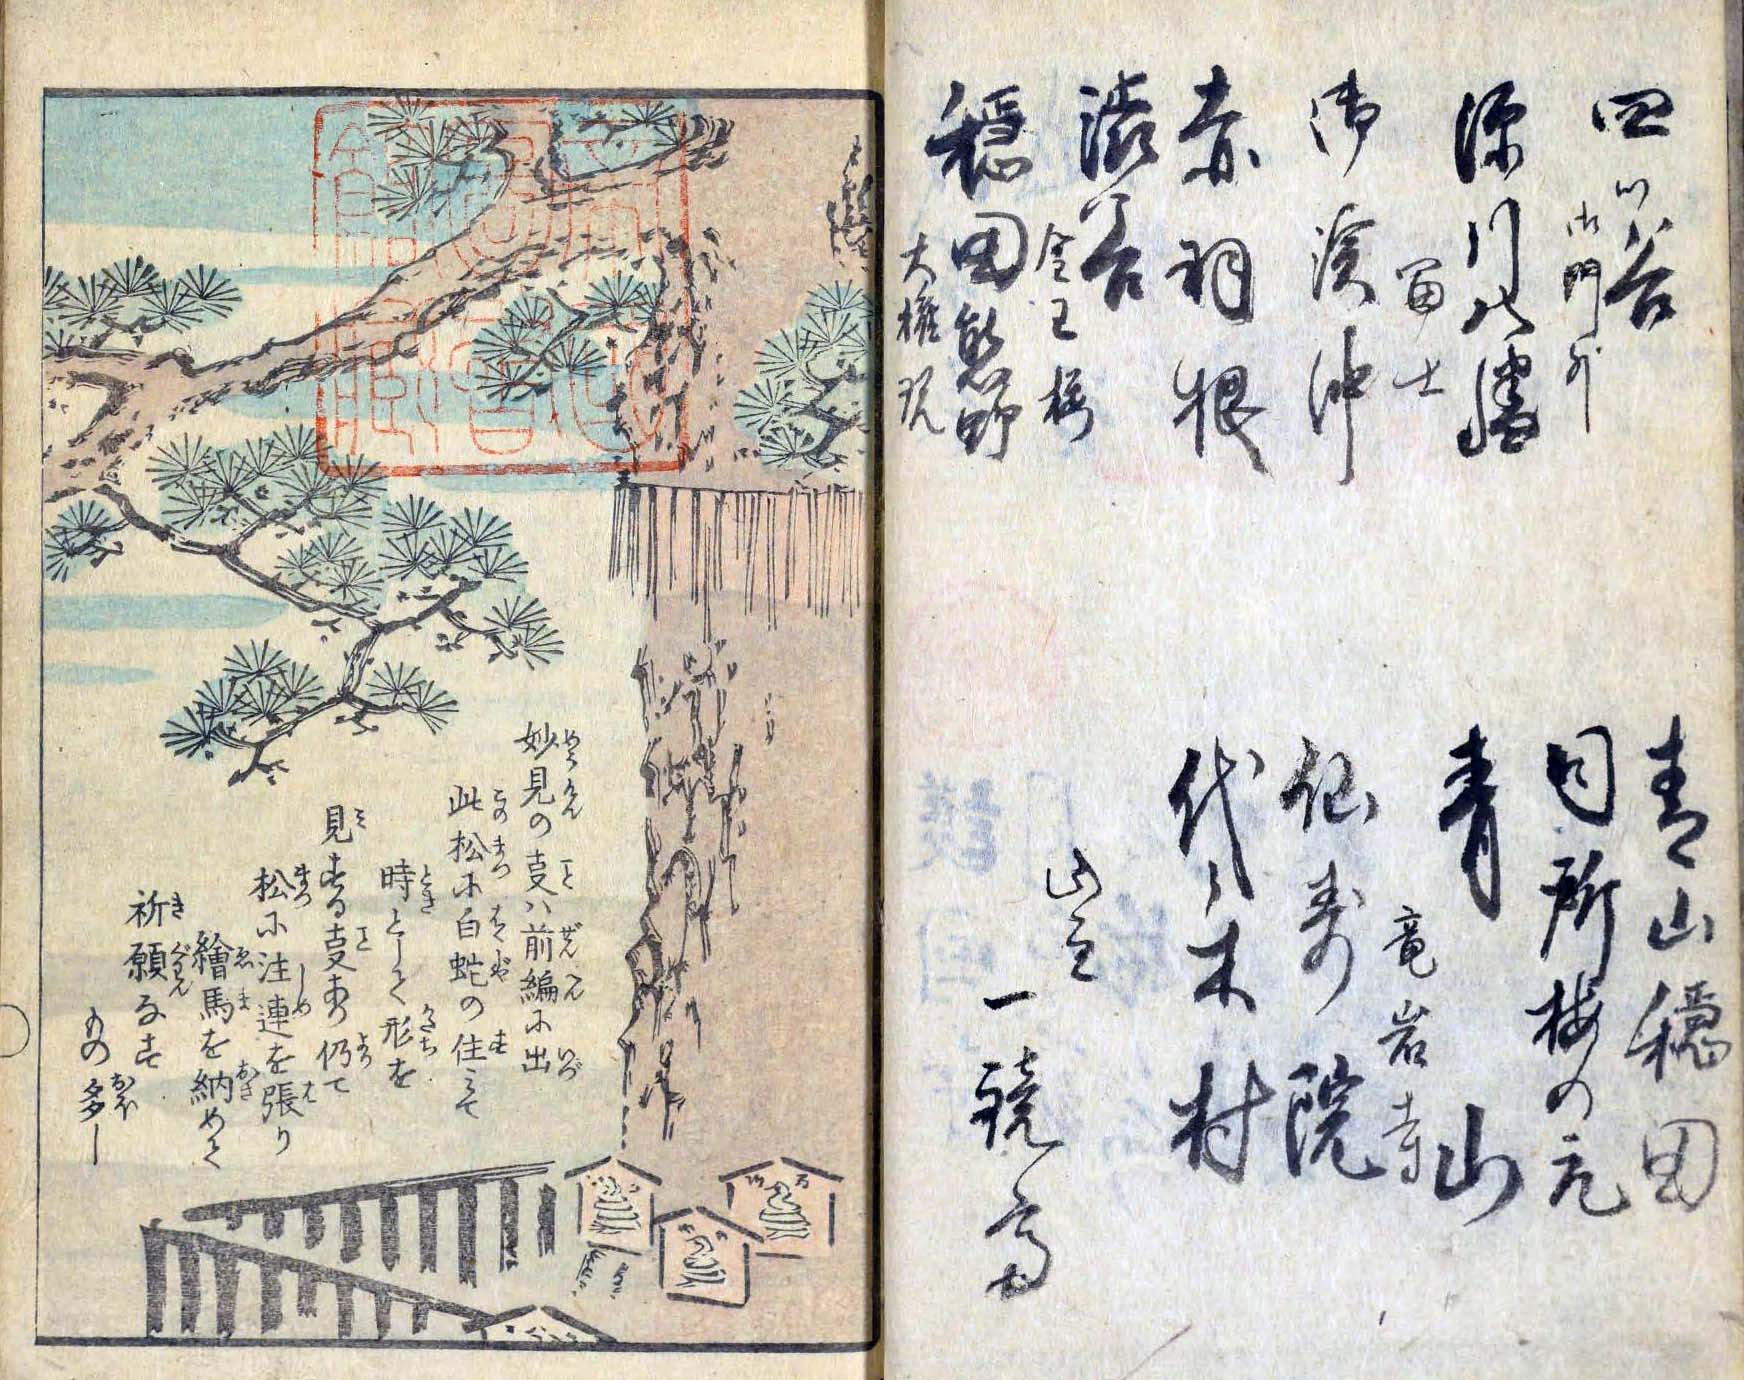 四ツ谷
御門外
深川八幡
富士
御溪冲
赤羽根
渋谷
金王桜
穏田熊野
大権現
青山穏田
同所梅の元
青山
竜岩寺
仙寿院
代々木村
山立
一
妙見の事ハ前編に出
此松に白蛇の住ミて
時として形を
見する事あり仍て
松に注連を張り
繪馬を納めて
祈願なす
もの多し